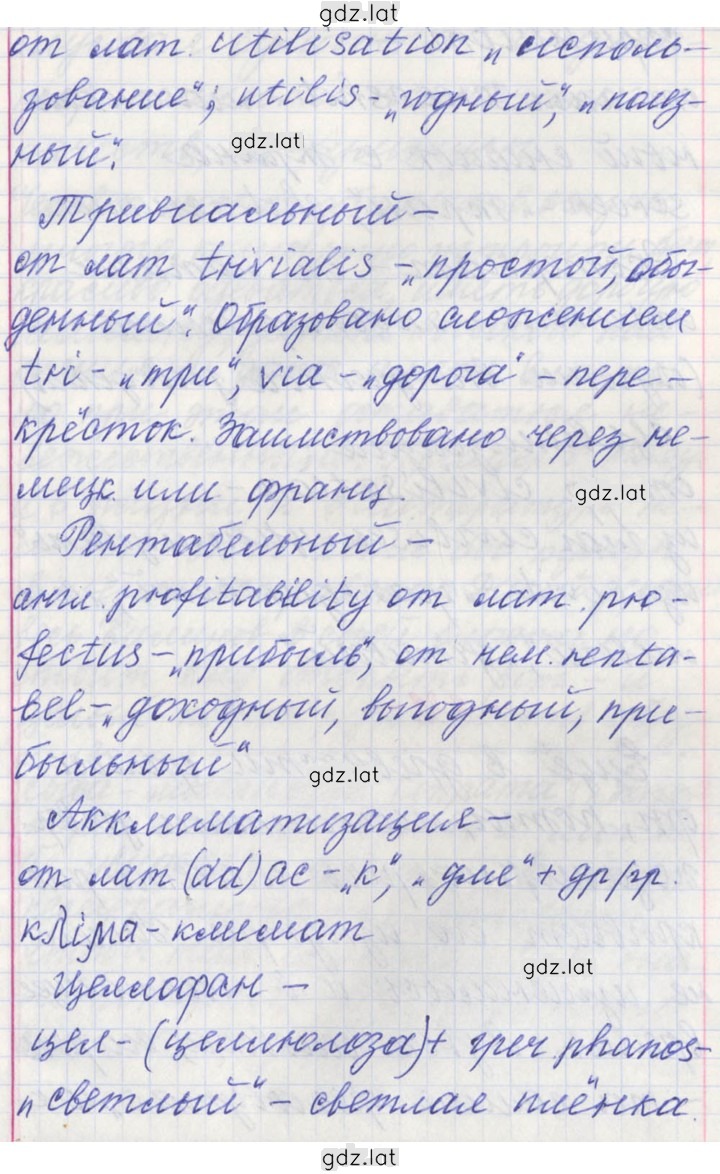 gdz.lat
от лат. utilisation „исполь-
зование"; utilis - „годный", „полез-
gdz.lat
ный".
Тривиальный -
от лат trivialis - „простой, обы-
денный". Образовано сложением
tri - „три", via - „дорога" - пере-
крёсток. Заимствовано через не-
мецк. или франц.
gdz.lat
Рентабельный -
англ. profitability от лат. pro-
fectus - „прибыль", от нем. renta-
bel - „доходный, выгодный, при-
быльный"
gdz.lat
Акклиматизация -
от лат (ad) ac - „к", „для" + др/гр.
κλίμα - климат
gdz.lat
Целлофан -
цел - (целлюлоза) + греч. phanos -
„светлый" - светлая плёнка.
gdz.lat